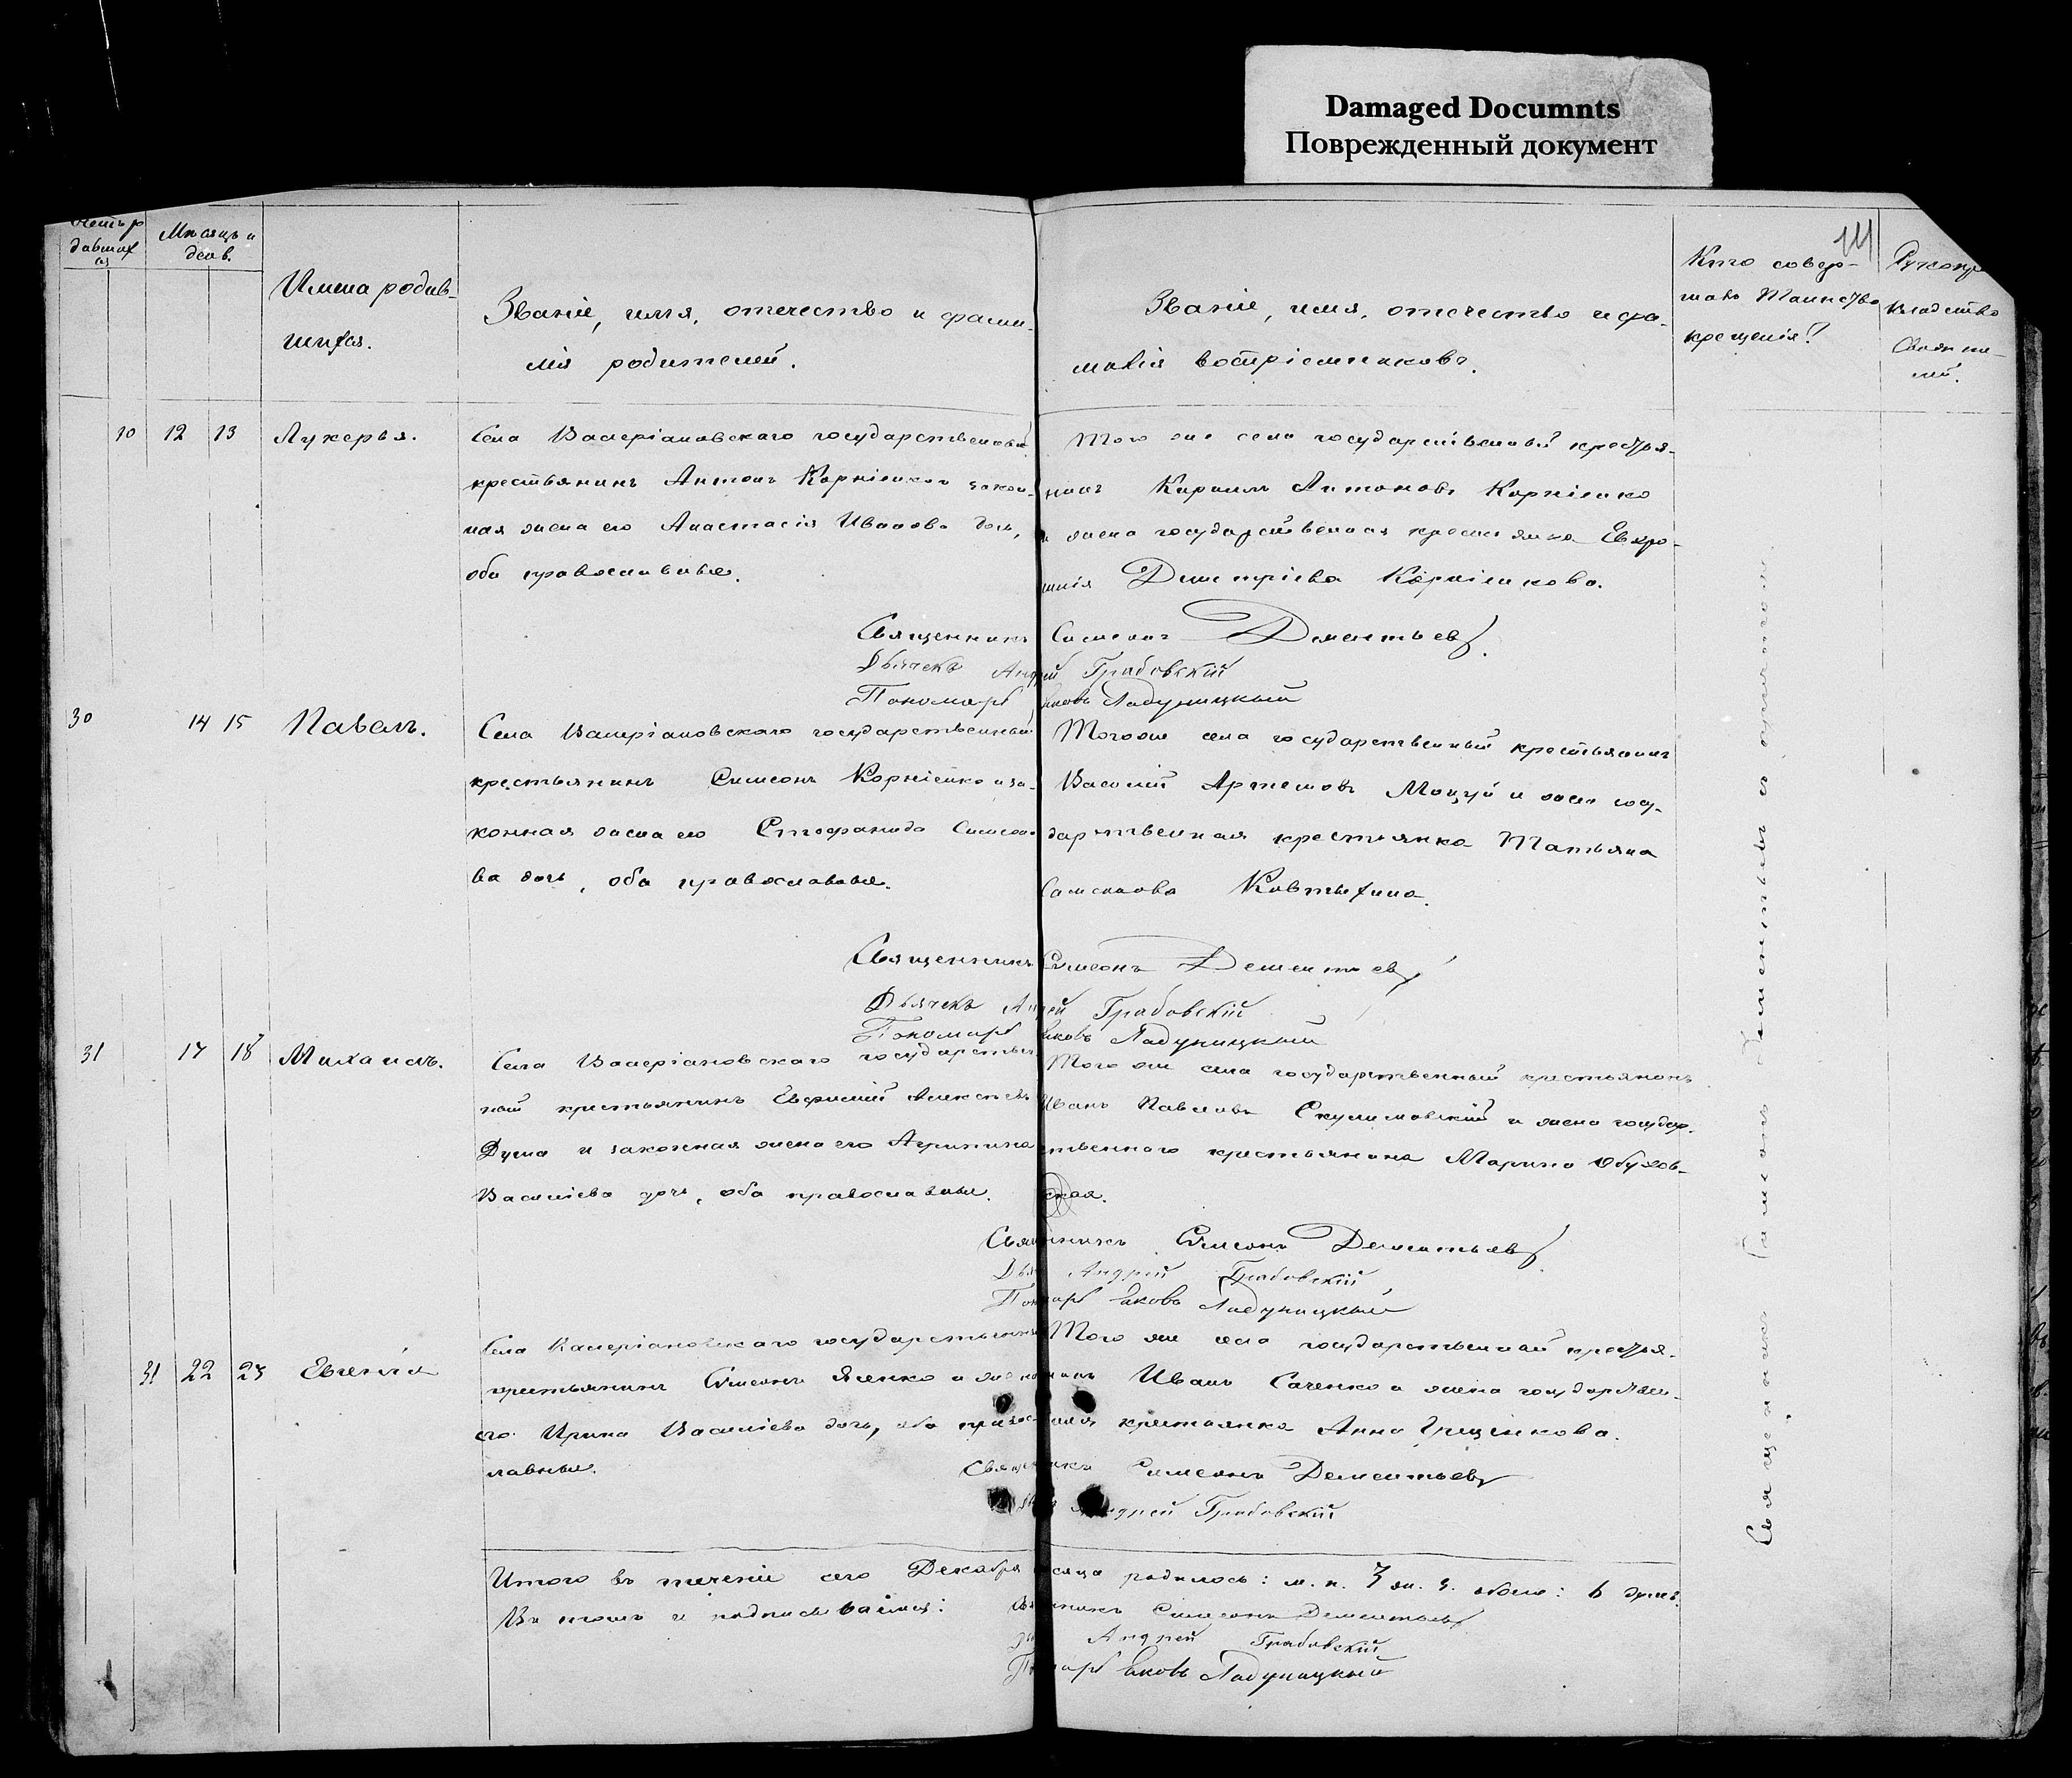 Damaged Documnts
Поврежденный документ
Мѣсяцъ и
день.
Имена родив-
шихся.
Званіе, имя, отечество и фами-
лія родителей.
Званіе, имя, отечество и фа-
милія воспріемниковъ.
Кто совер-
шалъ Таинство
крещенія?
30 12 13 Лукерья.
Села Валеріановскаго государственный
крестьянинъ Антонъ Корніенко закон-
ная жена его Анастасія Иванова дочь,
оба православные.
Того же села государственный крестья-
нинъ Кириллъ Антоновъ Корніенко
и жена государственная крестьянка Евфро-
Димитріева Корніенкова.
Священникъ Симеонъ Дементьевъ.
Дьячекъ Андрей Грабовскій
Пономарь Яковъ Ладуницкый
30 14 15 Павелъ.
Села Валеріановскаго государственный
крестьянинъ Симеонъ Корніенко и за-
конная жена его Стефанида Симеоно-
ва дочь, оба православные.
Того же села государственный крестьянинъ
Василій Артемовъ и жена госу-
дарственная крестьянка Татьяна
Священникъ Симеонъ Дементьевъ
Дьячекъ Андрей Грабовскій
Пономарь Яковъ Ладуницкый
31 17 18 Михаилъ.
Села Валеріановскаго государствен-
ный крестьянинъ Евфимій Алексѣевъ
Дума и законная жена его Агрипина
Василіева дочь, оба православные.
Того же села государственный крестьянинъ
Иванъ Павловъ и жена государ-
ственнаго крестьянина Марина Обухов-
ская.
Священникъ Симеонъ Дементьевъ
Андрей Грабовскій
Яковъ Ладуницкый
31 22 23 Евгенія
Села Валеріановскаго государственный
крестьянинъ Симеонъ Яценко и жена
его Ирина Василіева дочь, оба правос-
лавные.
Того же села государственный крестья-
нинъ Иванъ Саченко и жена государствен-
ная крестьянка Анна Грищенкова.
Священникъ Симеонъ Дементьевъ
Андрей Грабовскій
Итого въ теченіе сего Декабря мѣсяца родилось: м. п. 3 ж. 3. обоего: 6 душъ.
Въ томъ и подписываемся: Священникъ Симеонъ Дементьевъ
Андрей Грабовскій
Пономарь Яковъ Ладуницкый
Священникъ Симеонъ Дементьевъ съ причтомъ